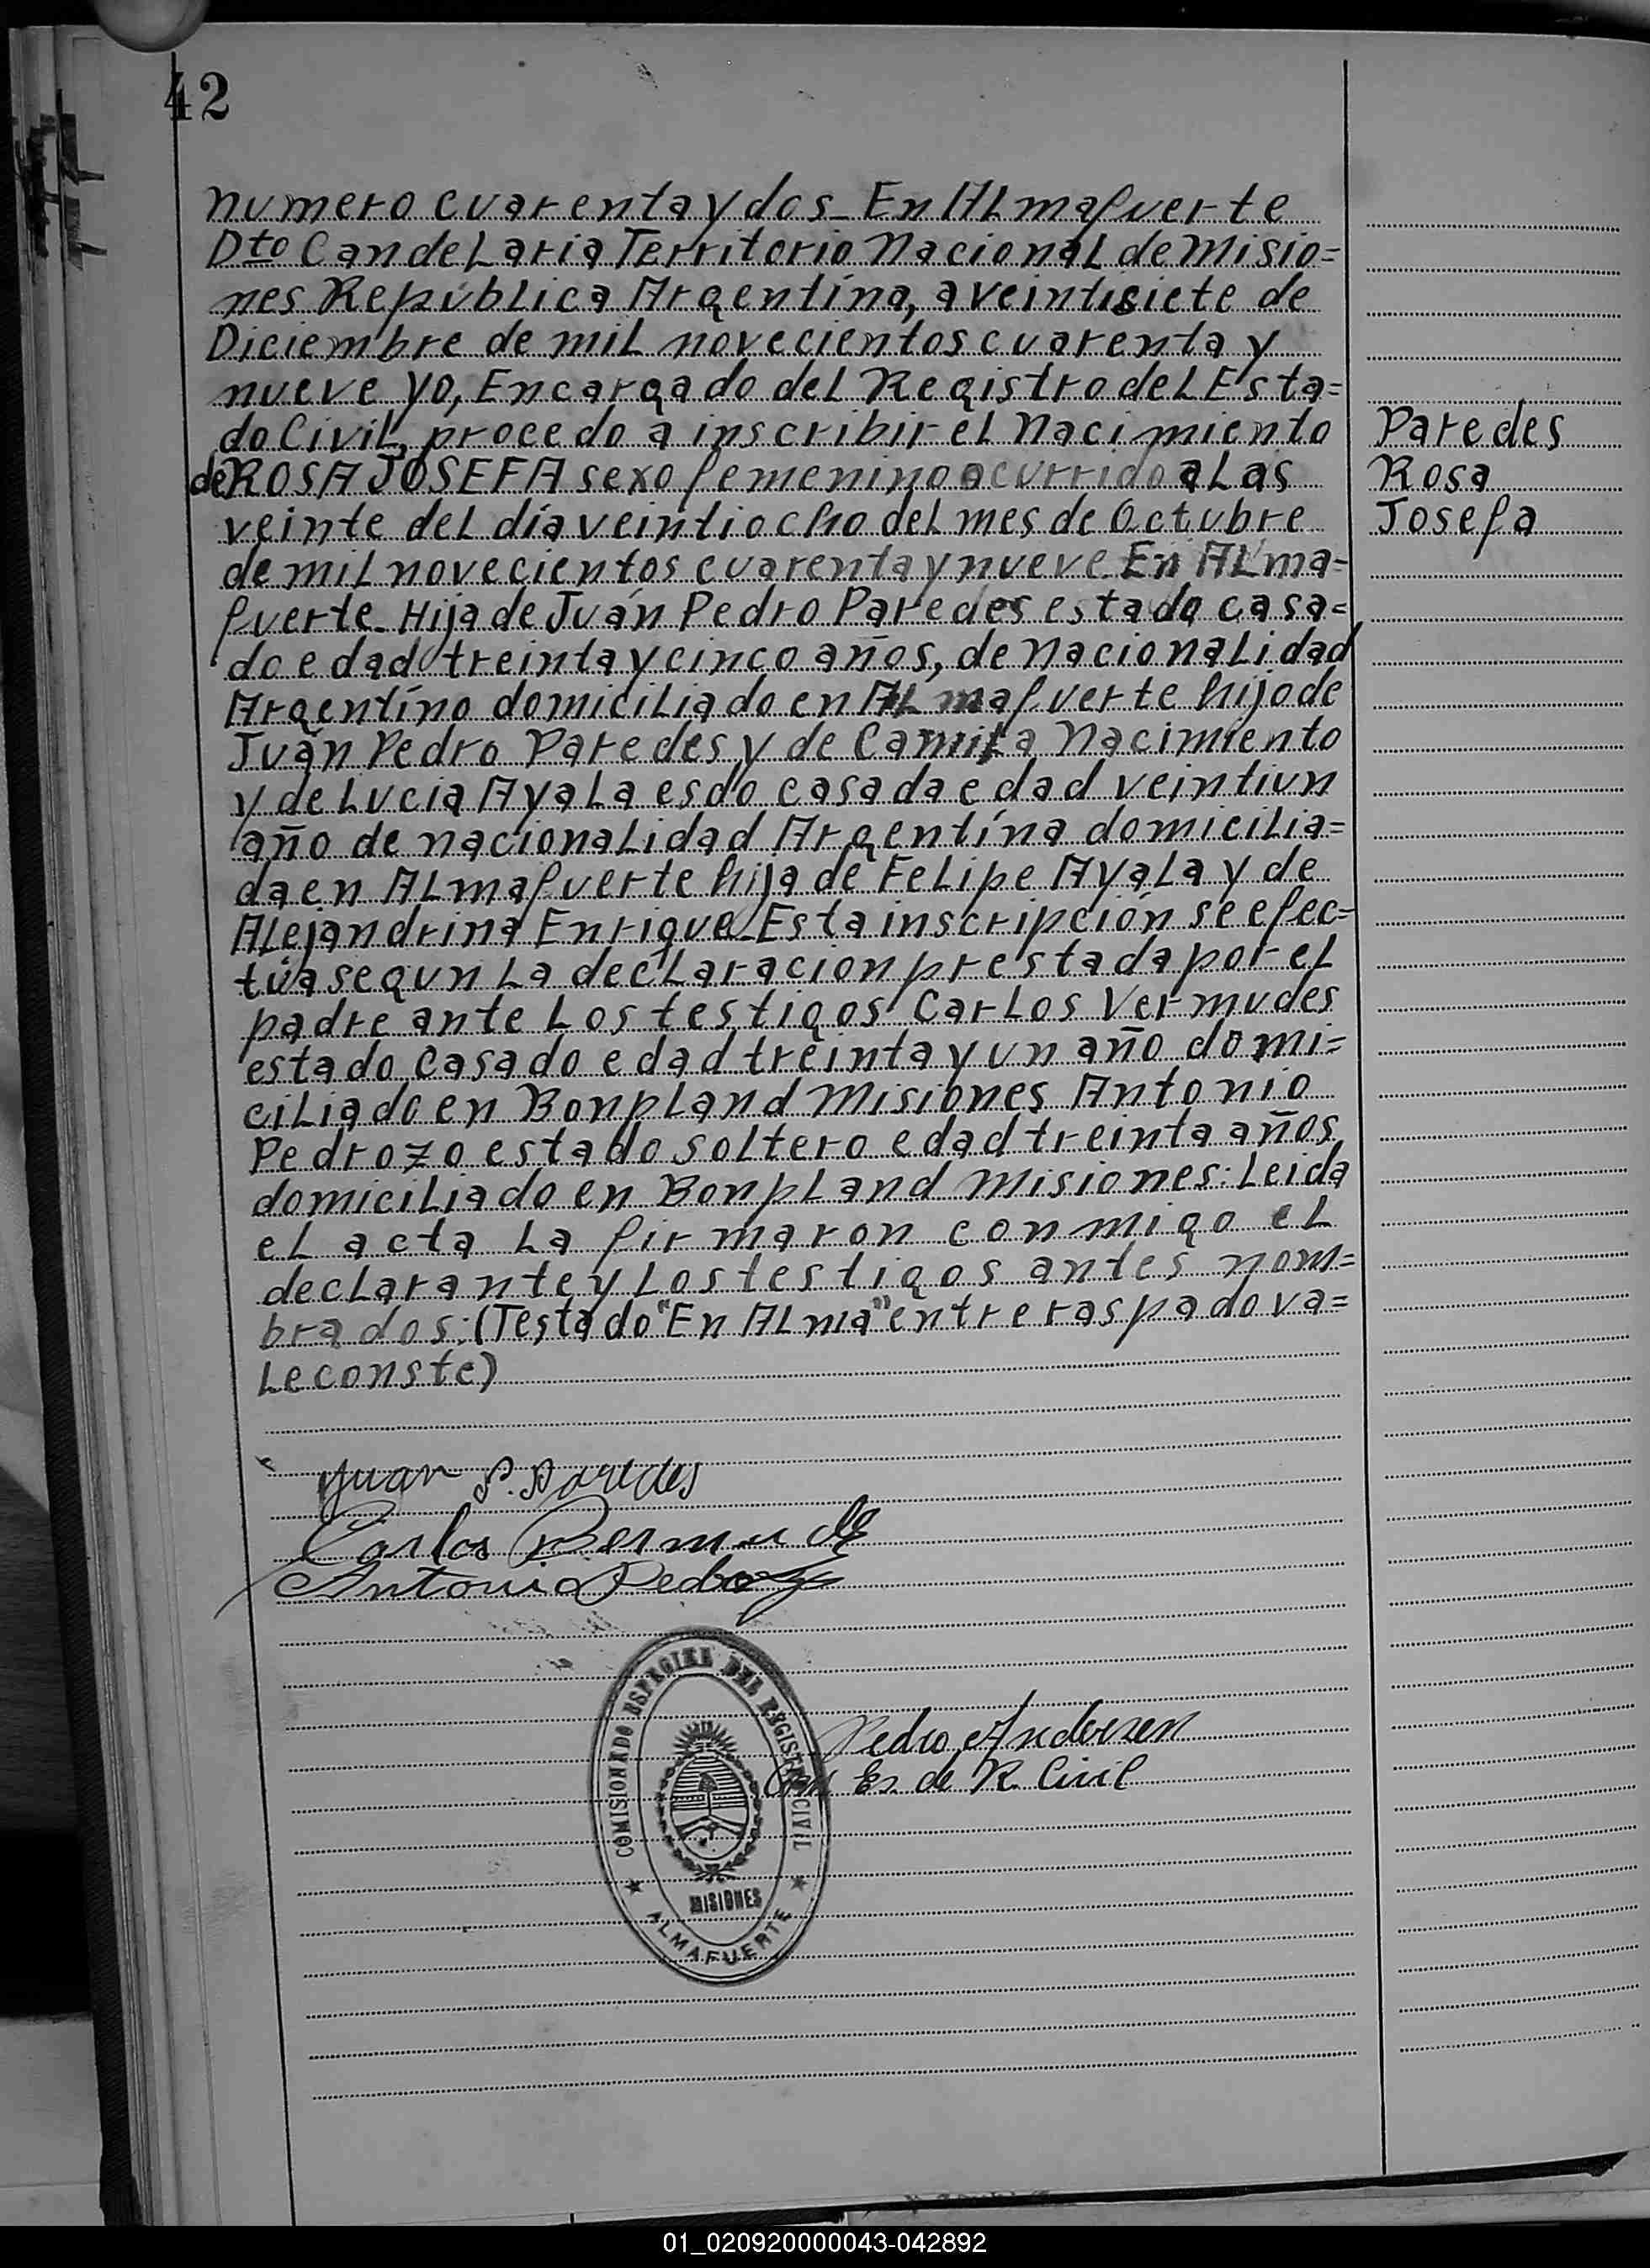 42
numero cuarenta y dos_ En ALmafuerte
Dto CandeLaria Territorio NacionaL de Misio=
nes RepúbLica Argentína, a veintisiete de
Diciembre de miL novecientos cuarenta y
nueve yo, Encargado deL Registro deL Esta=
do CiviL, procedo a inscribir eL Nacimiento
de ROSA JOSEFA sexo femenino ocurrido a Las
veinte deL día veintiocho deL mes de Octubre
de miL novecientos cuarenta y nueve. En ALma=
fuerte. Hija de Juán Pedro Paredes estado casa=
do edad treinta y cinco años, de NacionaLidad
Argentíno domiciLiado en ALmafuerte hijo de
Juán Pedro Paredes y de CamiLa Nacimiento
y de Lucia AyaLa esdo casada edad veintiun
año de nacionaLidad Argentína domiciLia=
da en ALmafuerte hija de FeLipe AyaLa y de
ALejandrina Enrique_ Esta inscripción se efec=
túa segun La decLaracion prestada por eL
padre ante Los testigos CarLos Vermudes
estado casado edad treinta y un año domi=
ciLiado en BonpLand Misiones Antonio
Pedrozo estado soLtero edad treinta años
domiciLiado en BonpLand Misiones: Leida
eL acta La firmaron conmigo eL
decLarante y Los testigos antes nom=
brados: (Testado "En ALma" entre raspado va=
Le conste)
Paredes
Rosa
Josefa
Juan P. Paredes
Carlos Bermudes
Antonio Pedrozo
COMISIONADO ESPECIAL DEL REGISTRO CIVIL
MISIONES
ALMAFUERTE
Pedro Andersen
Com Es. de R. Civil
01_020920000043-042892